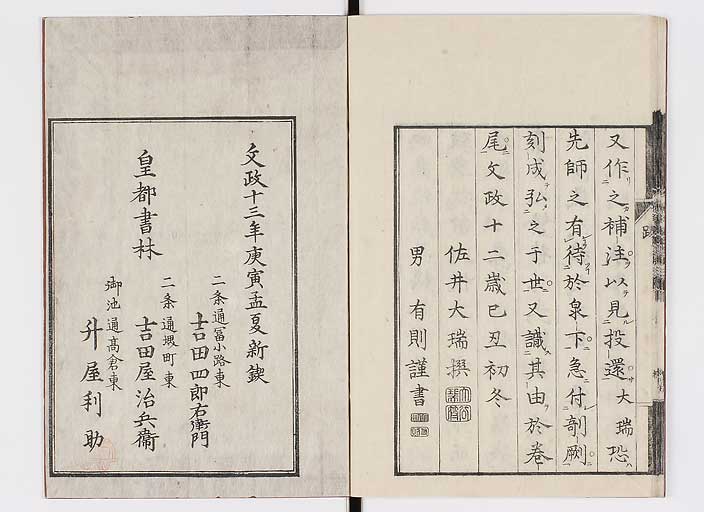 又作之補注以見投還大瑞恐
先師之有待於泉下急付剞劂
刻成弘之于世又識其由於巻
尾文政十二歳己丑初冬
佐井大瑞撰
男有則謹書
跋
文政十三年庚寅孟夏新鍥
皇都書林
二条通冨小路東
吉田四郎右衛門
二条通堺町東
吉田屋治兵衛
御池通髙倉東
升屋利助